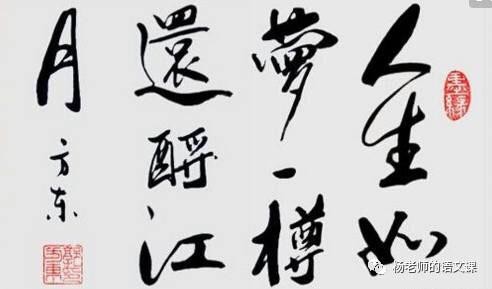 墨緣
人生如
夢一樽
還酹江
月
方东
杨老师的语文课